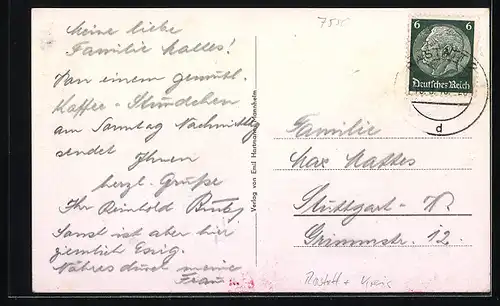 Meine liebe
Familie Mattes!
Von einem gemütl.
Kaffee-Stündchen
am Sonntag Nachmittg
sendet Ihnen
herzl. Grüße
Ihr Reinhold
Sonst ist aber hier
ziemlich Essig.
Näheres durch meine
Frau
Verlag von Emil Hartmann, Mannheim
75
6 6
Deutsches Reich
d
Familie
Max Mattes
Stuttgart-W
Grimmstr. 12.
Rastatt + Kreis